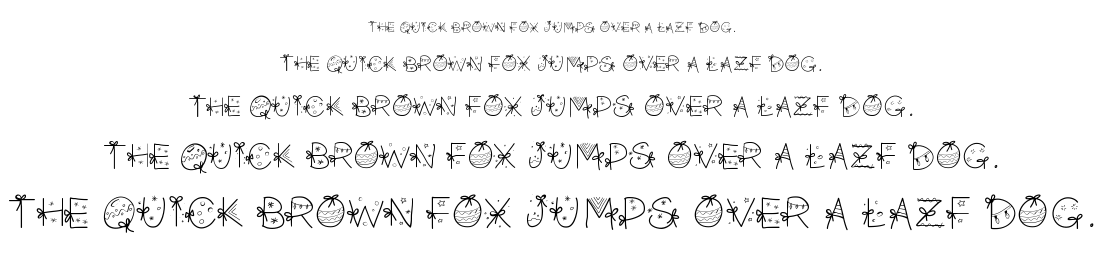 THE QUICK BROWN FOX JUMPS OVER A LAZF DOG.
THE QUICK BROWN FOX JUMPS OVER A LAZF DOG.
THE QUICK BROWN FOX JUMPS OVER A LAZF DOG.
THE QUICK BROWN FOX JUMPS OVER A LAZF DOG.
THE QUICK BROWN FOX JUMPS OVER A LAZF DOG.